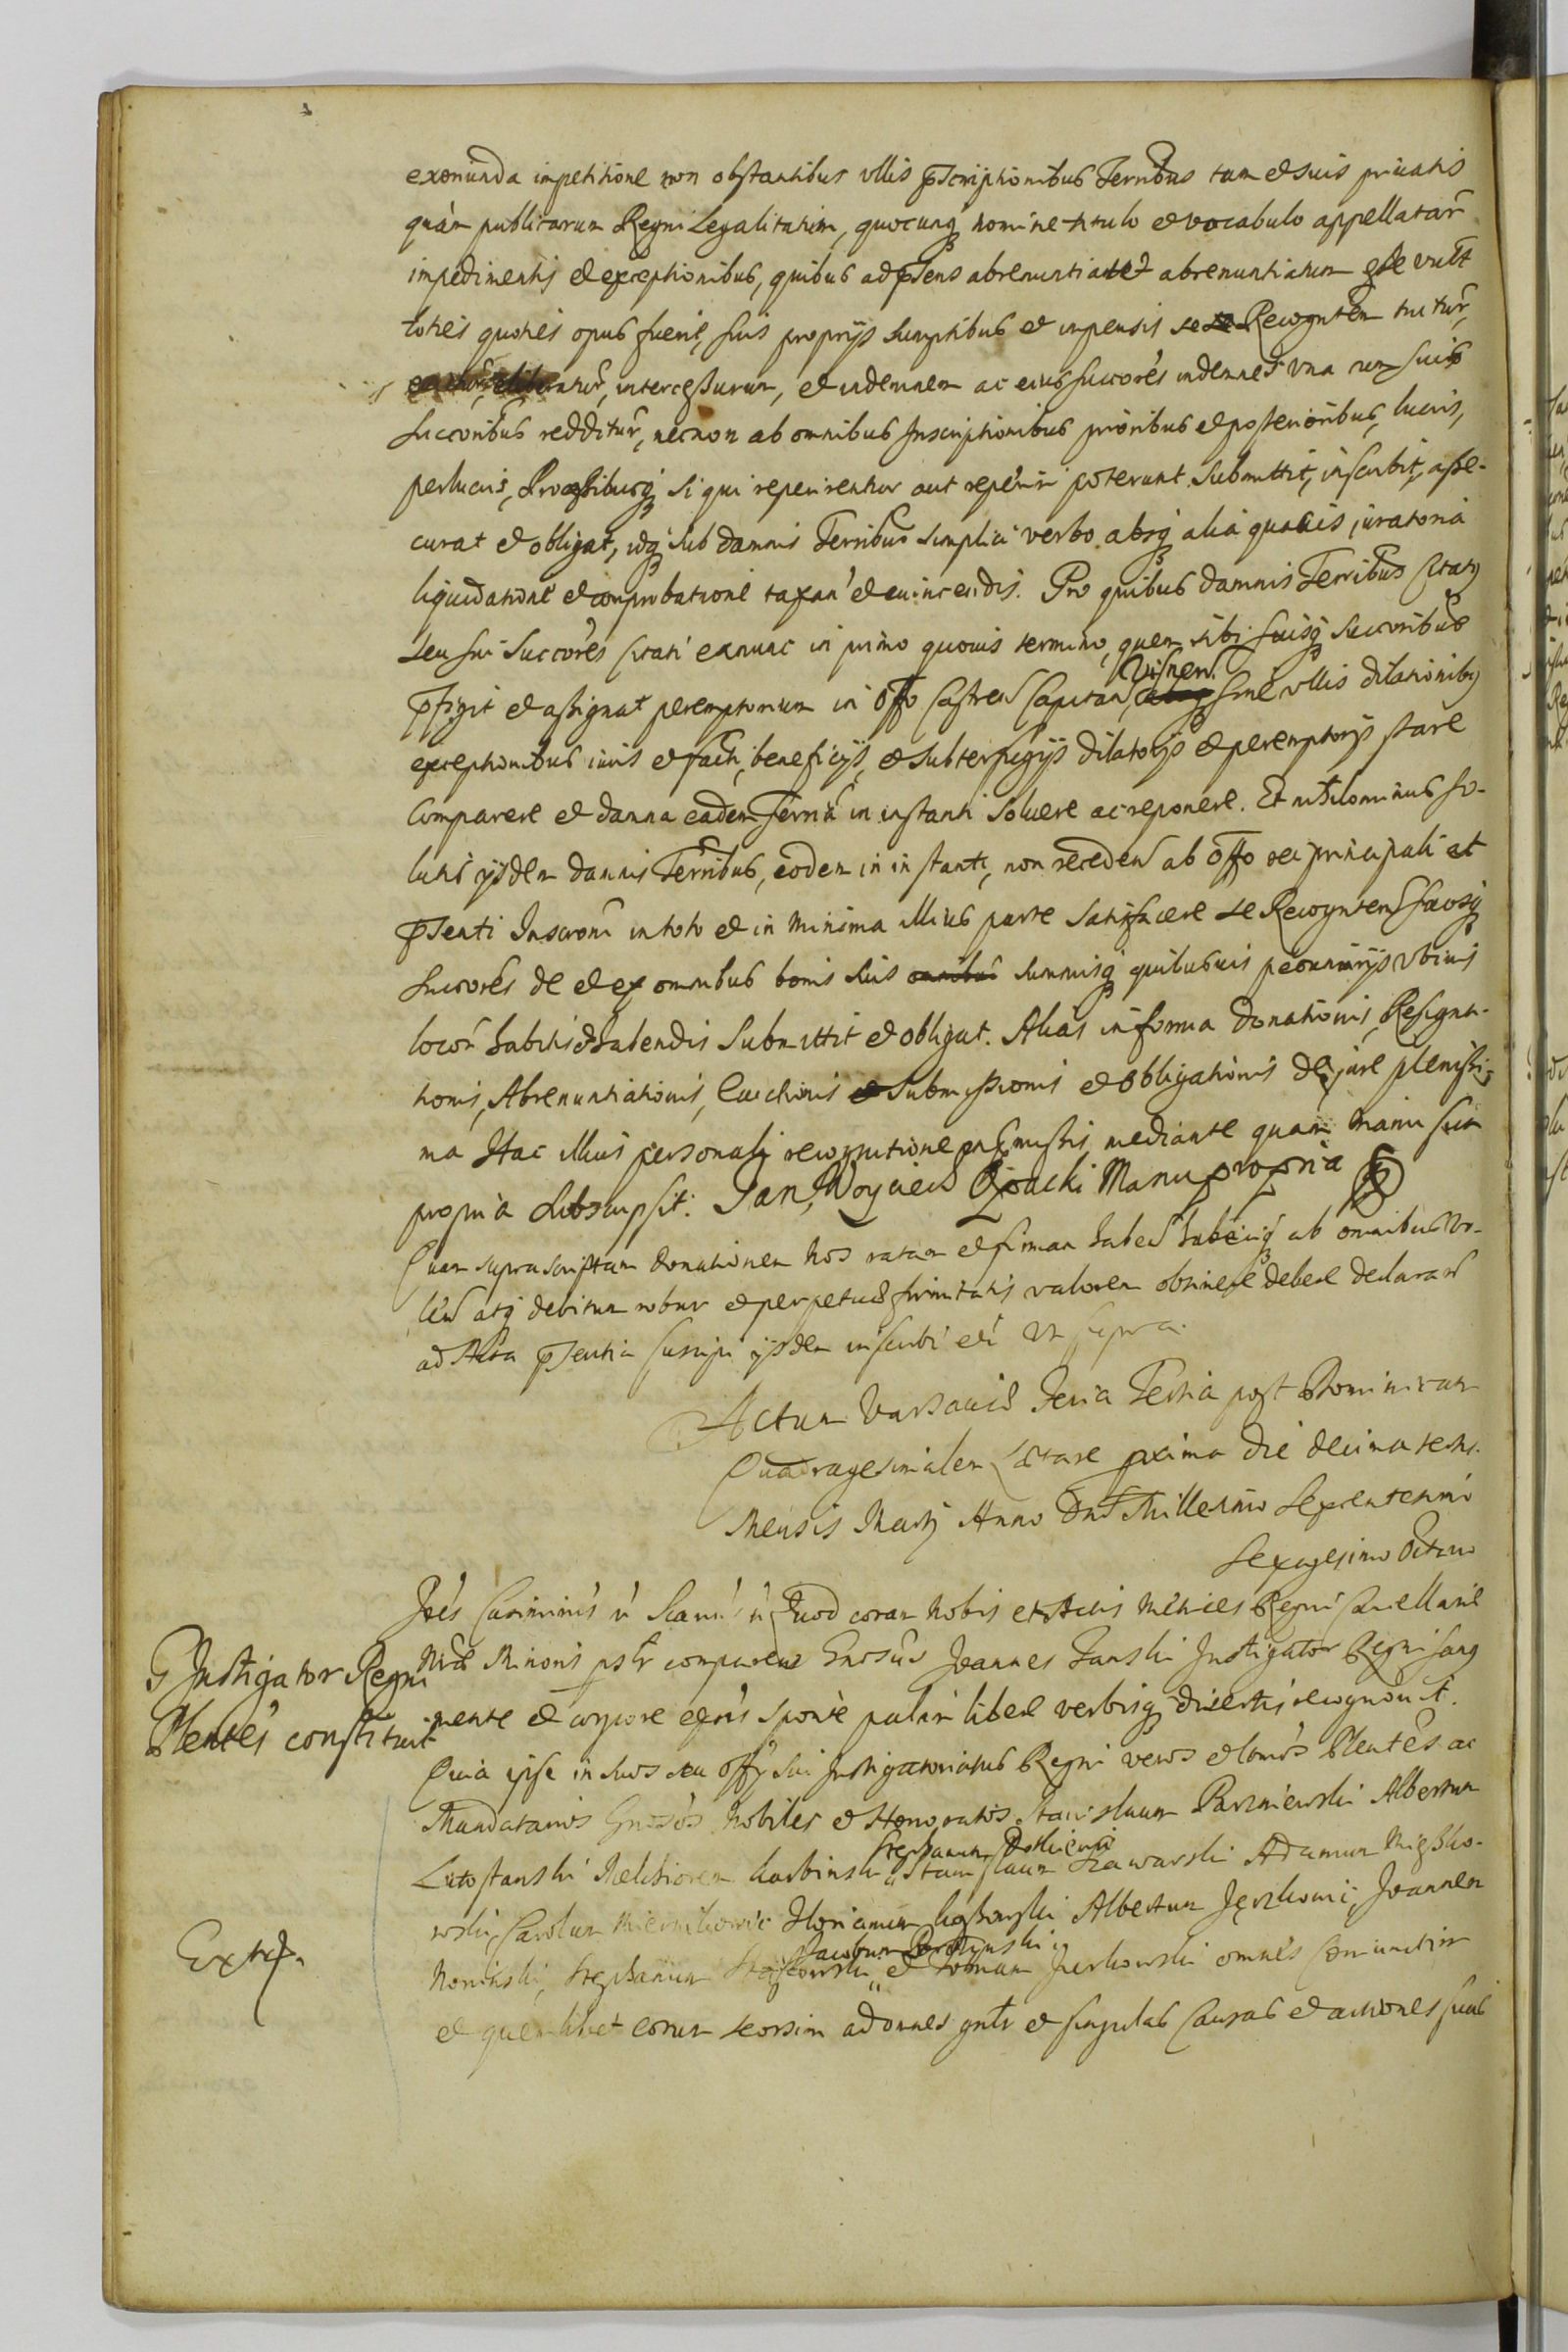 exonunda impetitione non obstantibus ullis pscriptionibus Terribus tam et suis privatis
quàm publicarum Regni Legalitatum, quocunq nomine titulo et vocabulo appellatar
impedimentis et exceptionibus, quibus ad psens abrenuntiat et abrenuntiatum esse vult
toties quoties opus fuerit, suis proprijs sumptibus et impensis se Recognten tutur,
intercessurum, et indemnem ac eius succores indemnes una cum suis
succoribus redditur, necnon ab omnibus Inscriptionibus prioribus et posterioribus, lucris,
perlucris, Processibusq si qui reperirentur aut reperiri poterunt submittit, inscribit, asse-
curat et obligat, idq sub damnis Terribus simplici verbo absq alia quavis juratoria
liquidatione et comprobatione taxan et evincendis. Pro quibus damnis Terribus citatq
seu sui succores citati exnunc in primo quovis termino, quem sibi suisq succoribus
pfigit et assignat peremptorium in Offo Castren Capitan Visnen sine ullis dilationibq
exceptionibus iuris et facti, beneficijs, et subterfugijs dilatorijs et peremptorijs stare
comparere et damna eadem Terria in instanti solvere ac reponere. Et nihilominus so-
lutis ijsdem damnis Terribus, eodem in instanti, non recedens ab Offo rei principali et
psenti Inscroni in toto et in minima illius parte satisfacere se Recognten suosq
succores de et ex omnibus bonis suis omnibus summisq quibusvis pecuniarijs ubivis
locor habitis et habendis submittit et obligat. Alias in forma Donationis, Resigna-
tionis, Abrenuntiationis, Evictionis et Submissionis et Obligationis de jure plenissi-
ma Hac illius personali recognitione mediante quam manu sua
propria subscripsit: Jan Woyciech Opacki Manu propria
Quam suprascriptam donationem nos ratam et firmam haben habeiq ab omnibus vo-
len atq debitum robur et perpetuæ firmitatis valorem obtinere debere declaran
ad Acta psentia suscipi ijsdem inscribi eti ut supra.
Actum Varsaviæ Feria Tertia post Dominicam
Quadragesimalem Lætare pxima die decima tertia
Mensis Martij Anno Dni Millesimo Sexcentesimo
Sexagesimo Octavo
Joes Casimirus Quod coram nobis et Actis Metrices Regni Cancellariæ
G Instigator Regni
Plentes constituit
Nræ Minoris pslr comparens Gnosus Joannes Tanski Instigator Regni sang
mente et corpore exns sponte palam libere verbisq disertis recognovit.
Quia ipse in suos seu offij sui Instigatoriatus Regni veros et ltmos Plentes ac
Mandatarios Gnosos Nobiles et Honoratos Stanislaum Parzniewski Albertum
Stephanum
Lutostanski Melchiorem Karbinski Stanislaum Adamum
Carolum Florianum Albertum Joannem
Jacobum
Extr.
Stephanum et omnes coniunctim
et quemlibet eorum seorsim ad omnes gnlr et singulas Causas et actiones suas